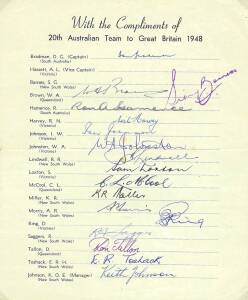 With the Compliments of
20th Australian Team to Great Britain 1948
Bradman, D. G. (Captain)
(South Australia)
Hassett, A. L. (Vice Captain)
(Victoria)
Barnes, S. G.
(New South Wales)
Brown, W. A.
(Queensland)
Hamence, R. Ron A Hamence
(South Australia)
Harvey, R. N.
(Victoria)
Johnson, I. W.
(Victoria)
Johnston, W. A.
(Victoria)
Lindwall, R. R.
(New South Wales)
Loxton, S. Sam Loxton
(Victoria)
McCool, C. L.
(Queensland)
Miller, K. R.
(New South Wales)
Morris, A. R.
(New South Wales)
Ring, D.
(Victoria)
Saggers, R.
(New South Wales)
Tallon, D. Don Tallon
(Queensland)
Toshack, E. R. H. E. R. Toshack
(New South Wales)
Johnson, K. O. E. (Manager) Keith Johnson
(New South Wales)